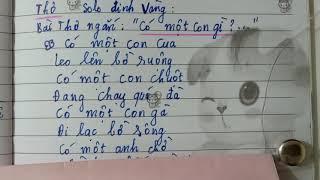 Thơ Solo định Vàng:
Bài Thơ ngắn: "Có một con gì?..."
Có một con Cua
Leo lên bờ ruộng
Có một con chuột
Đang chạy quá đà
Có một con gà
Đi lạc bờ sông
Có một anh chồ